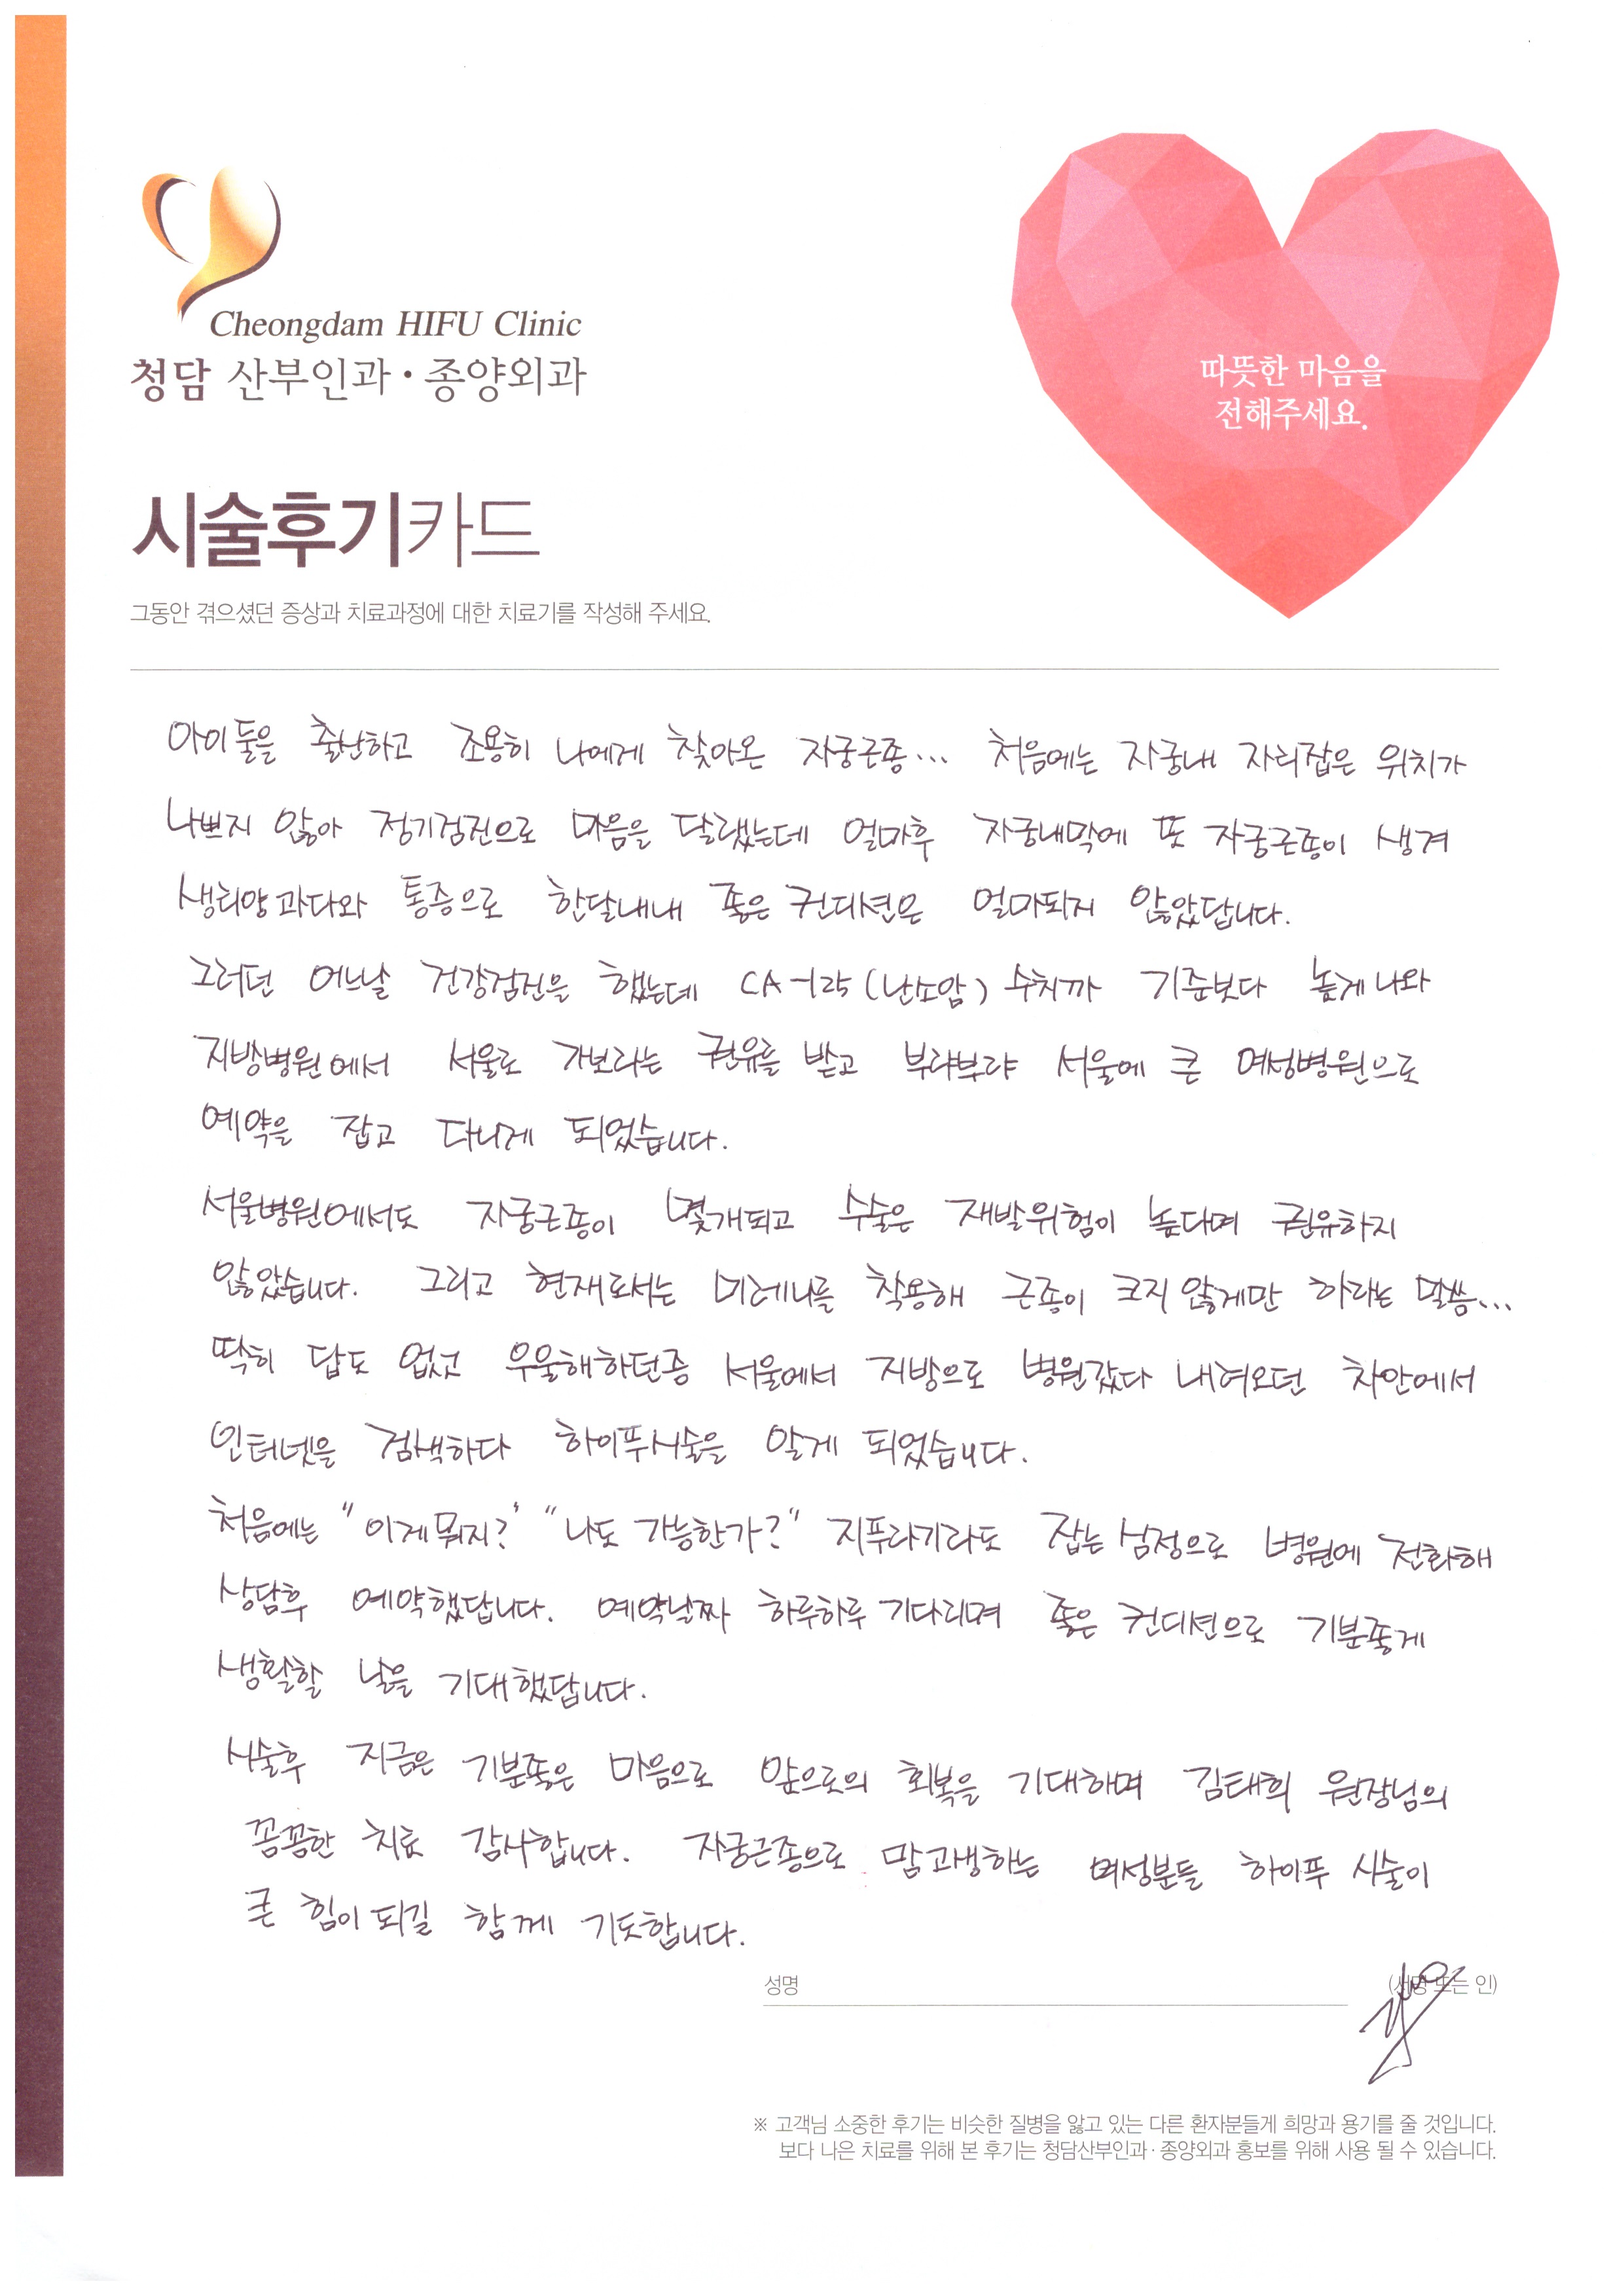 Cheongdam HIFU Clinic
청담 산부인과·종양외과
따뜻한 마음을
전해주세요.
시술후기카드
그동안 겪으셨던 증상과 치료과정에 대한 치료기를 작성해 주세요.
아이 둘을 출산하고 조용히 나에게 찾아온 자궁근종... 처음에는 자궁내 자리잡은 위치가
나쁘지 않아 정기검진으로 마음을 달랬는데 얼마후 자궁내막에 또 자궁근종이 생겨
생리양 과다와 통증으로 한달내내 좋은 컨디션은 얼마되지 않았답니다.
그러던 어느날 건강검진을 했는데 CA-125 (난소암) 수치까 기준보다 높게 나와
지방병원에서 서울로 가보라는 권유를 받고 부랴부랴 서울에 큰 여성병원으로
예약을 잡고 다니게 되었습니다.
서울병원에서도 자궁근종이 몇개되고 수술은 재발위험이 높다며 권유하지
않았습니다. 그리고 현재로서는 미레나를 착용해 근종이 크지 않게만 하라는 말씀...
딱히 답도 없고 우울해하던중 서울에서 지방으로 병원갔다 내려오던 차안에서
인터넷을 검색하다 하이푸시술을 알게 되었습니다.
처음에는 "이게 뭐지?" "나도 가능한가?" 지푸라기라도 잡는 심정으로 병원에 전화해
상담후 예약했답니다. 예약날짜 하루하루 기다리며 좋은 컨디션으로 기분좋게
생활할 날을 기대했답니다.
시술후 지금은 기분좋은 마음으로 앞으로의 회복을 기대하며 김태희 원장님의
꼼꼼한 치료 감사합니다. 자궁근종으로 맘고생하는 여성분들 하이푸 시술이
큰 힘이 되길 함께 기도합니다.
성명 (서명 또는 인)
※ 고객님 소중한 후기는 비슷한 질병을 앓고 있는 다른 환자분들게 희망과 용기를 줄 것입니다.
보다 나은 치료를 위해 본 후기는 청담산부인과·종양외과 홍보를 위해 사용 될 수 있습니다.